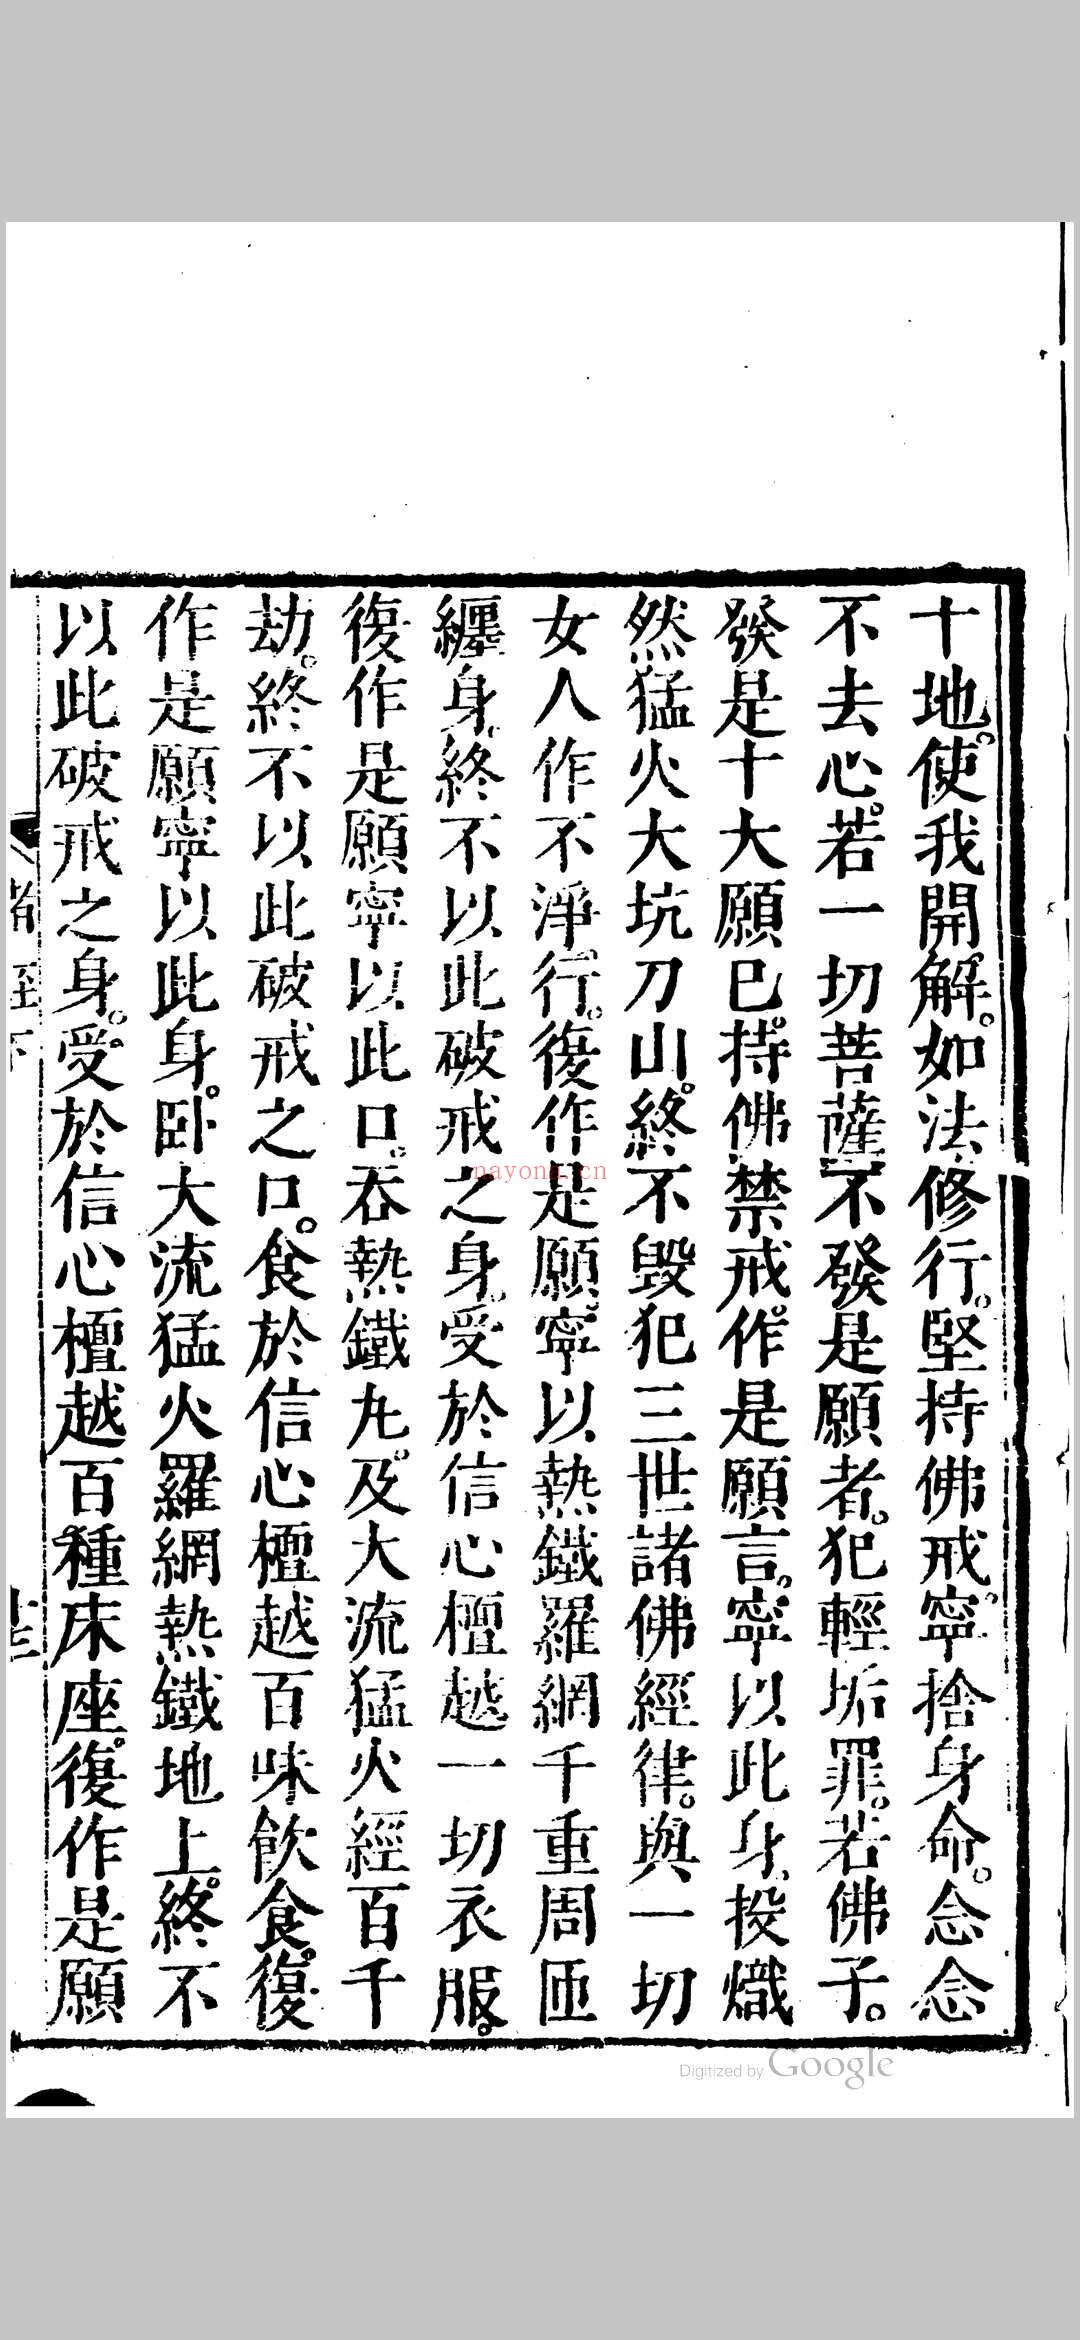 十地。使我開解。如法修行。堅持佛戒。寧捨身命。念念
不去心。若一切菩薩不發是願者。犯輕垢罪。若佛子。
發是十大願已。持佛禁戒。作是願言。寧以此身、投熾
然猛火大坑刀山。終不毀犯三世諸佛經律。與一切
女人作不淨行。復作是願。寧以熱鐵羅網千重周匝
纏身。終不以此破戒之身。受於信心檀越一切衣服。
復作是願寧以此口。吞熱鐵丸。及大流猛火經百千
劫。終不以此破戒之口。食於信心檀越百味飲食。復
作是願寧以此身。臥大流猛火羅網熱鐵地上。終不
以此破戒之身。受於信心檀越百種床座。復作是願
nayona.cn
Digitized by Google